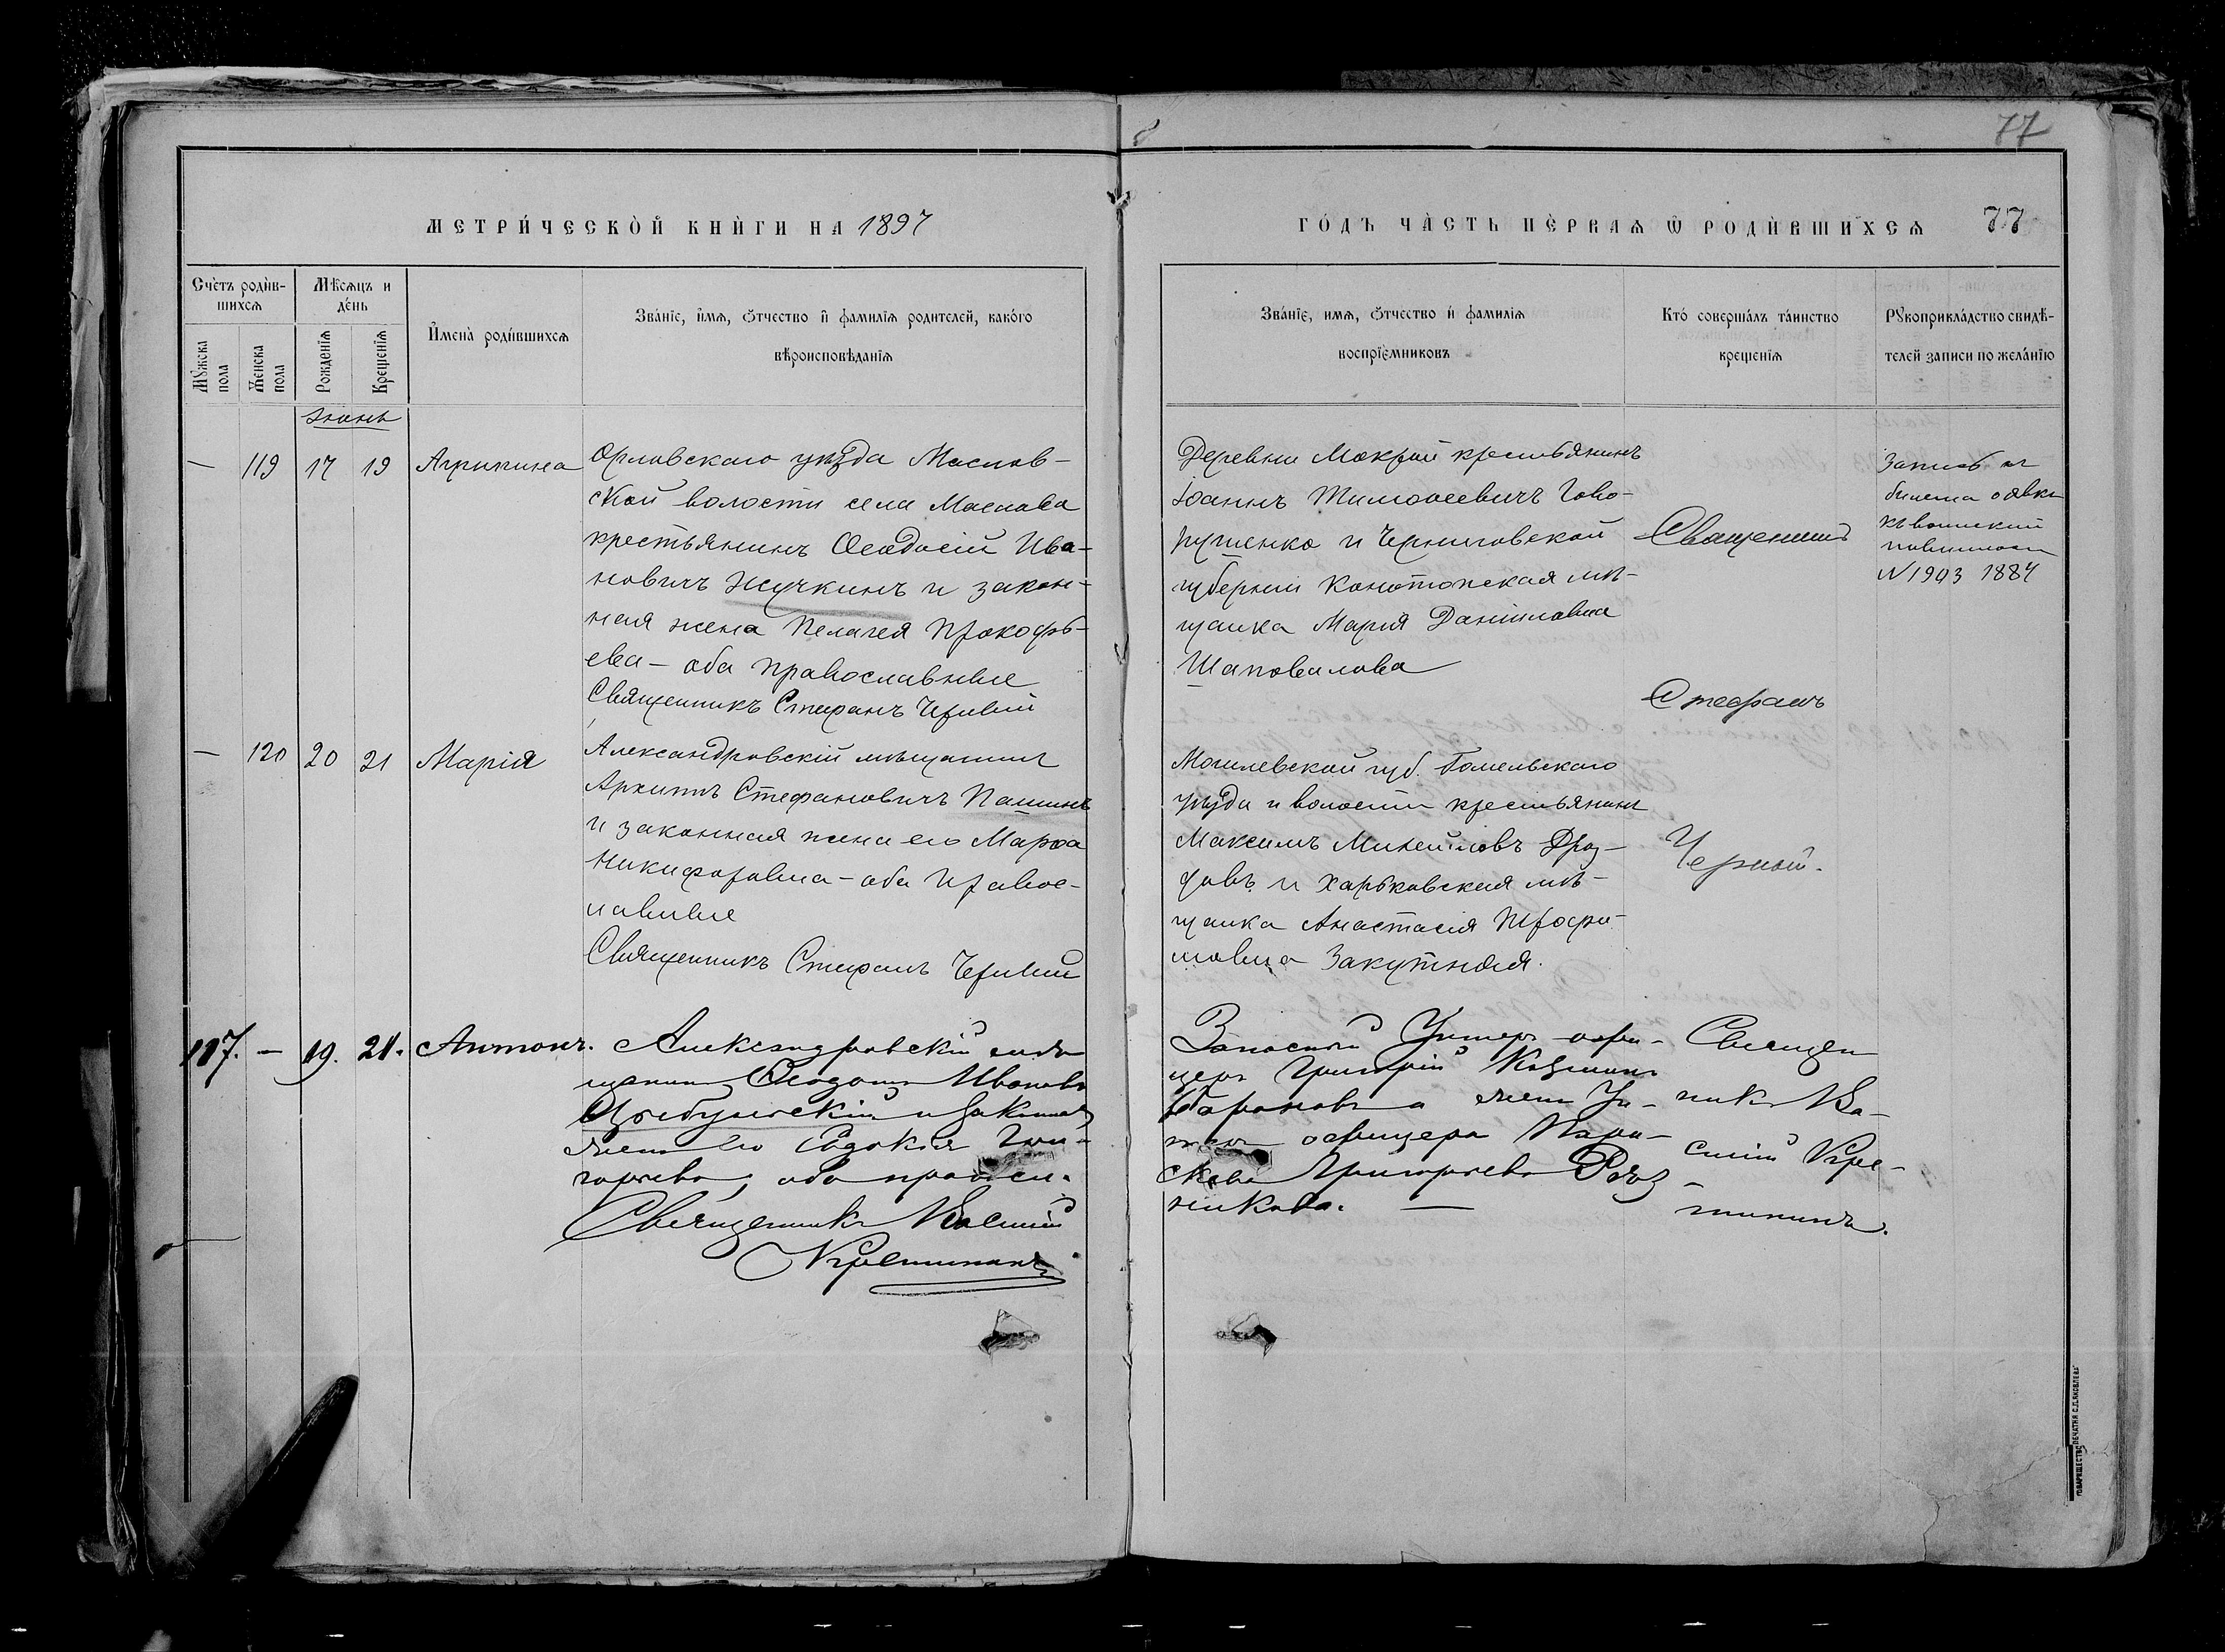 77
МЕТРИ́ЧЕСКО̀Й КНЍГИ НА 1897
ГО́ДЪ ЧА̀СТЬ ПЀРВАѦ Ѿ РОДИ́ВШИХСѦ 77
Сче́тъ роди́в-
шихсѧ
Мѣ́сѧцъ и
де́нь
И҆мена̀ роди́вшихсѧ
Зва́нїе, и҆́мѧ, ѻ҆́тчество и҆ фамилїѧ родителей, како́го
вѣроисповѣ́данїѧ
Мꙋ́жска
пола
Же́нска
пола
Рожде́нїѧ
Креще́нїѧ
Зва́нїе, имѧ, ѻ҆́тчество и҆ фамилїѧ
воспрїе́мниковъ
Кто́ соверша́лъ та́инство
креще́нїѧ
Рꙋкоприкла́дство свидѣ́-
телей записи по жела́нїю
Іюнь
— 119 17 19 Агрипина
Орловскаго уѣзда Маслов-
ской волости села Маслова
крестьянинъ Ѳеодосій Ива-
новичъ Жучкинъ и закон-
ная жена Пелагея Прокофь-
ева — оба православные
Священникъ Стефанъ Черный
Деревни Мокрой крестьянинъ
Іоаннъ Тимоѳеевичъ Гово-
рущенко и Черниговской
губерніи Конотопская мѣ-
щанка Марія Даніиловна
Шаповалова
Священникъ
Стефанъ
Черный.
Запись от
билета о явке
къ воинской
повинности
N 1943 1884
— 120 20 21 Марія
Александровскій мѣщанинъ
Архипъ Стефановичъ Пашинъ
и законная жена его Марѳа
Никифоровна — оба правос-
лавные
Священникъ Стефанъ Черный
Могилевской губ. Гомельскаго
уѣзда и волости крестьянинъ
Максимъ Михайловъ Дроз-
довъ и Харьковская мѣ-
щанка Анастасія Трофи-
мовна Закутняя.
117. — 19. 21. Антонъ.
Александровскій мѣ-
щанинъ Ѳеодотъ Ивановъ
и законная
жена его Евдокія Гри-
горьева, оба правосл.
Священникъ Василій
Крестининъ
Запасной Унтеръ-офи-
церъ Григорій Козминъ
Барановъ и жена Ун-
теръ офицера Пара-
скева Григорьева Рѣз-
никова. —
Священ
никъ Ва-
силій Кре-
стининъ.